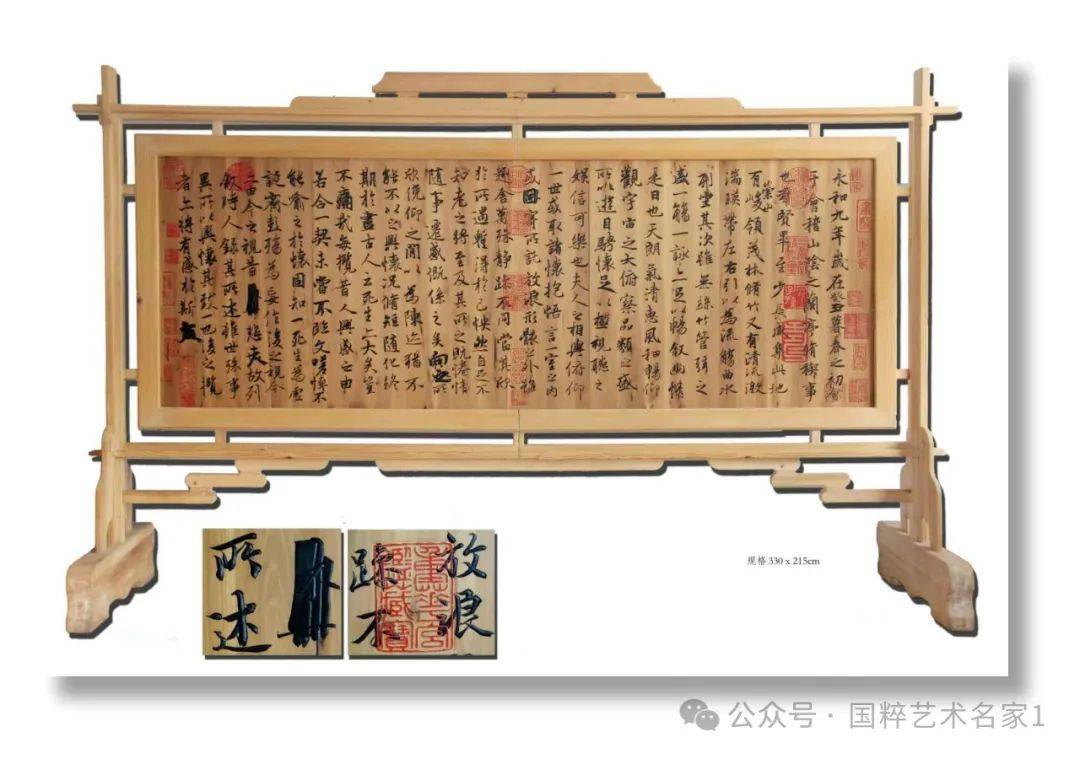 永和九年歲在癸丑暮春之初會
于會稽山陰之蘭亭脩稧事
也羣賢畢至少長咸集此地
有崇山峻領茂林脩竹又有清流激
湍暎帶左右引以為流觴曲水
列坐其次雖無絲竹管弦之
盛一觴一詠亦足以暢敘幽情
是日也天朗氣清惠風和暢仰
觀宇宙之大俯察品類之盛
所以遊目騁懷足以極視聽之
娛信可樂也夫人之相與俯仰
一世或取諸懷抱悟言一室之內
或因寄所託放浪形骸之外雖
趣舍萬殊靜躁不同當其欣
於所遇暫得於己怏然自足不
知老之將至及其所之既惓情
隨事遷感慨係之矣向之所
欣俛仰之間以為陳迹猶不
能不以之興懷況脩短隨化終
期於盡古人云死生亦大矣豈
不痛哉每攬昔人興感之由
若合一契未嘗不臨文嗟悼不
能喻之於懷固知一死生為虛
誕齊彭殤為妄作後之視今
亦由今之視昔悲夫故列
敘時人錄其所述雖世殊事
異所以興懷其致一也後之攬
者亦將有感於斯文
所述
放浪
躁不
规格 330 x 215cm
公众号 · 国粹艺术名家1